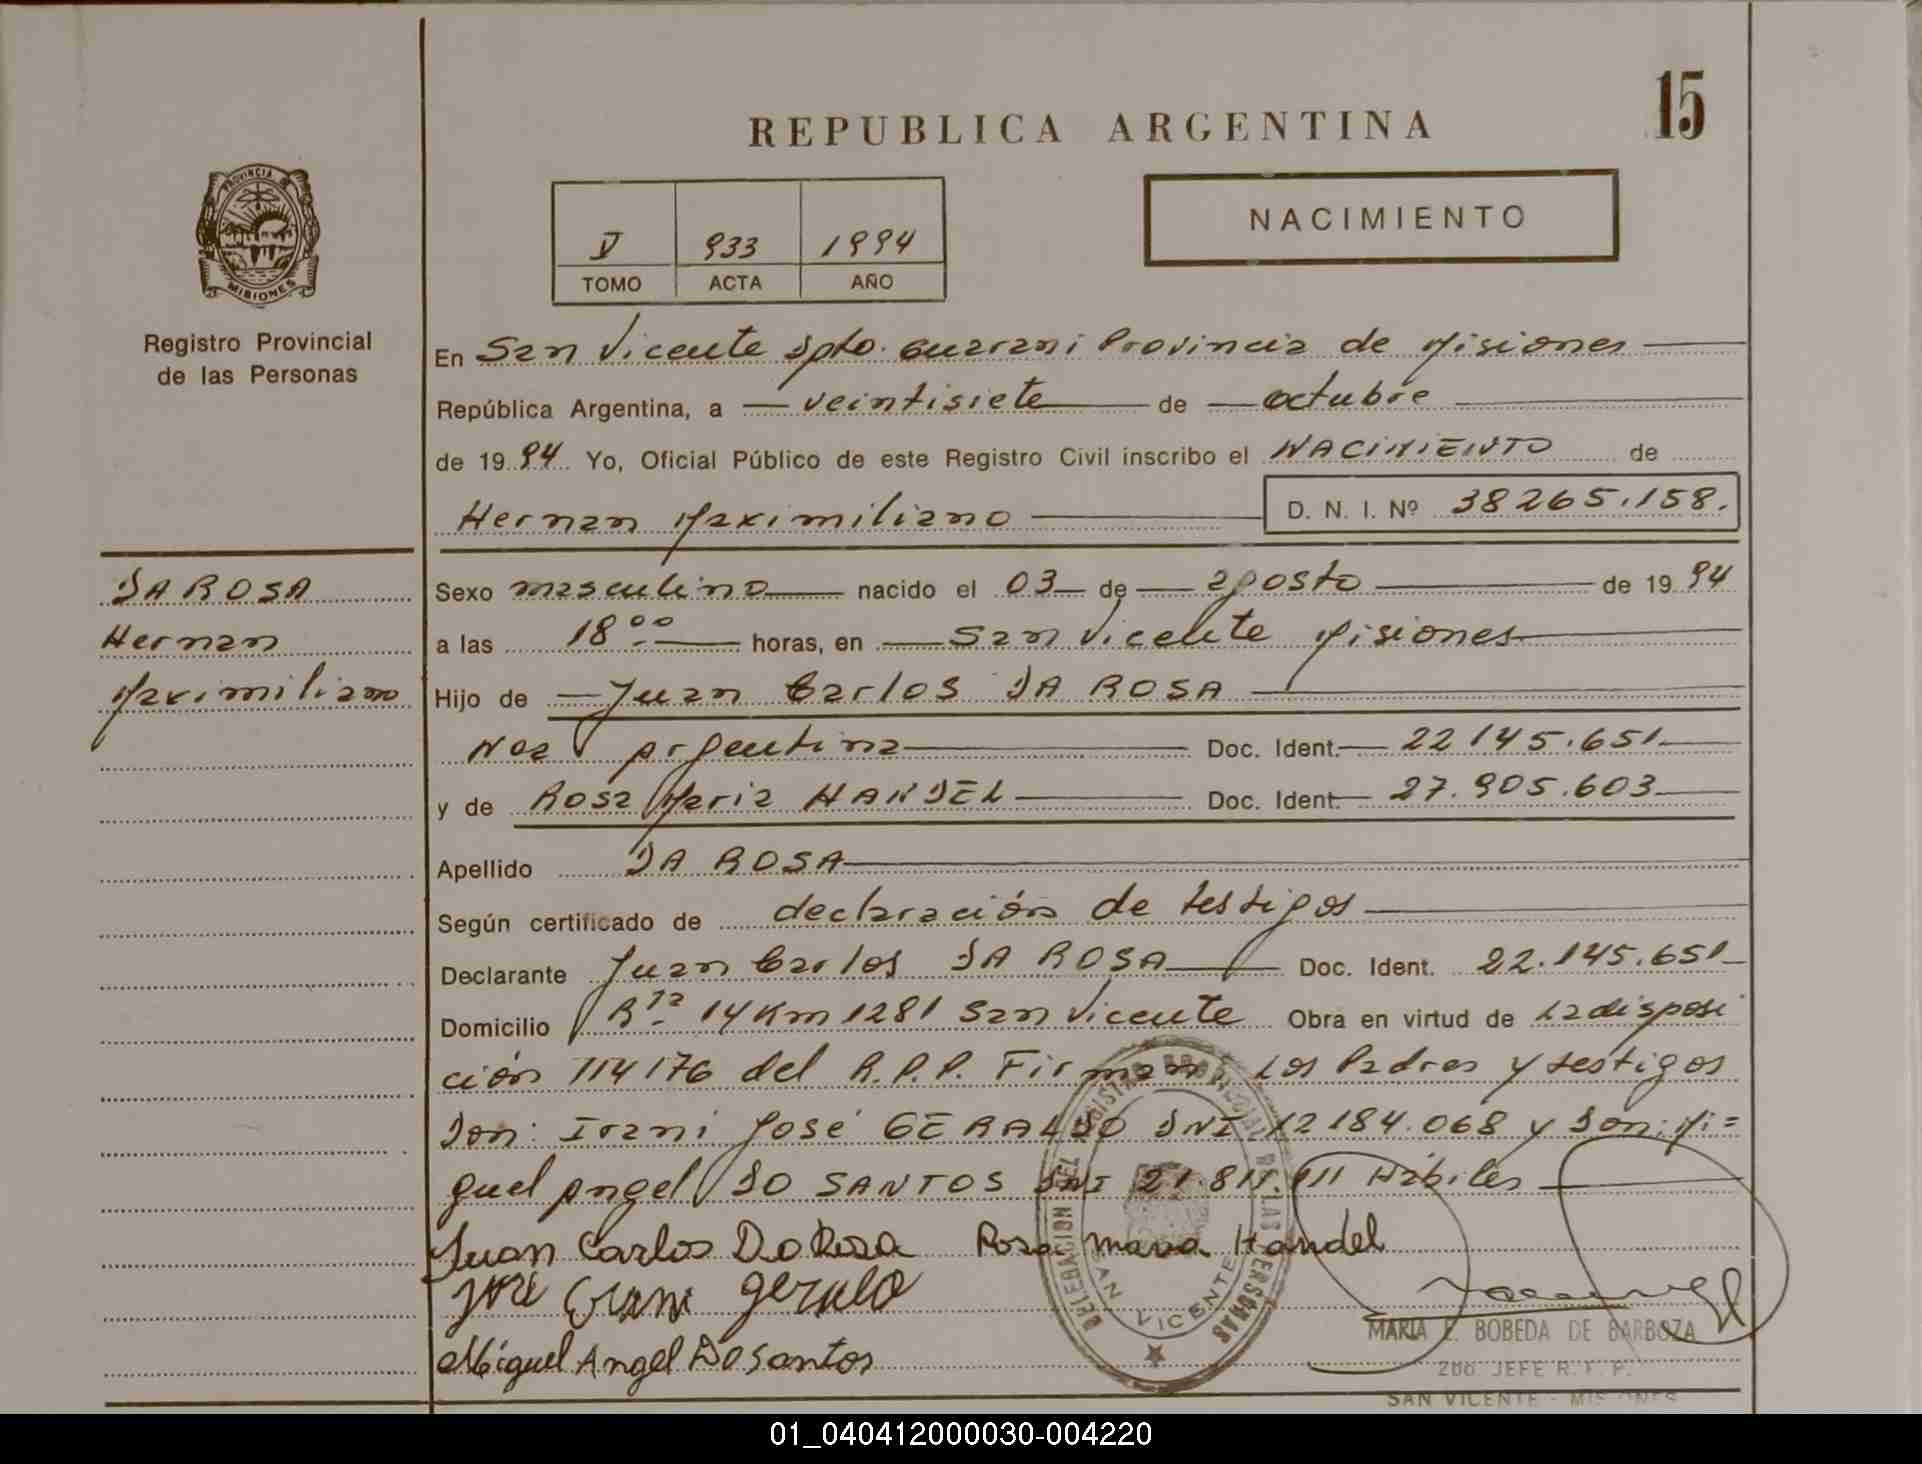 15
REPUBLICA ARGENTINA
NACIMIENTO
V 933 1994
TOMO ACTA AÑO
PROVINCIA DE
MISIONES
Registro Provincial
de las Personas
En San Vicente Dpto. Guarani Provincia de Misiones
República Argentina, a veintisiete de octubre
de 1994 Yo, Oficial Público de este Registro Civil inscribo el NACIMIENTO de
Hernan Maximiliano D. N. I. Nº 38265.158.
DA ROSA
Hernan
Maximiliano
Sexo masculino nacido el 03 de agosto de 1994
a las 18ºº horas, en San Vicente Misiones
Hijo de Juan Carlos DA ROSA
Nac argentina Doc. Ident. 22 145.651
y de Rosa Maria HANDEL Doc. Ident. 27.905.603
Apellido DA ROSA
Según certificado de declaración de testigos
Declarante Juan Carlos DA ROSA Doc. Ident. 22.145.651
Domicilio Rta 14 Km 1281 San Vicente Obra en virtud de la disposi
ción 114176 del R.P.P. Firman Los Padres y testigos
Don: Irani José GERALDO DNI 12184.068 y Don: Mi=
guel Angel DO SANTOS DNI 21.811.911 Hábiles
Juan Carlos Da Rosa Rosa maria Handel
José Irani geraldo
Miguel Angel Do santos
DELEGACION DEL REGISTRO PROVINCIAL DE LAS PERSONAS
SAN VICENTE
MARIA E. BOBEDA DE BARBOZA
2DO JEFE R. P. P.
SAN VICENTE - MISIONES
01_040412000030-004220